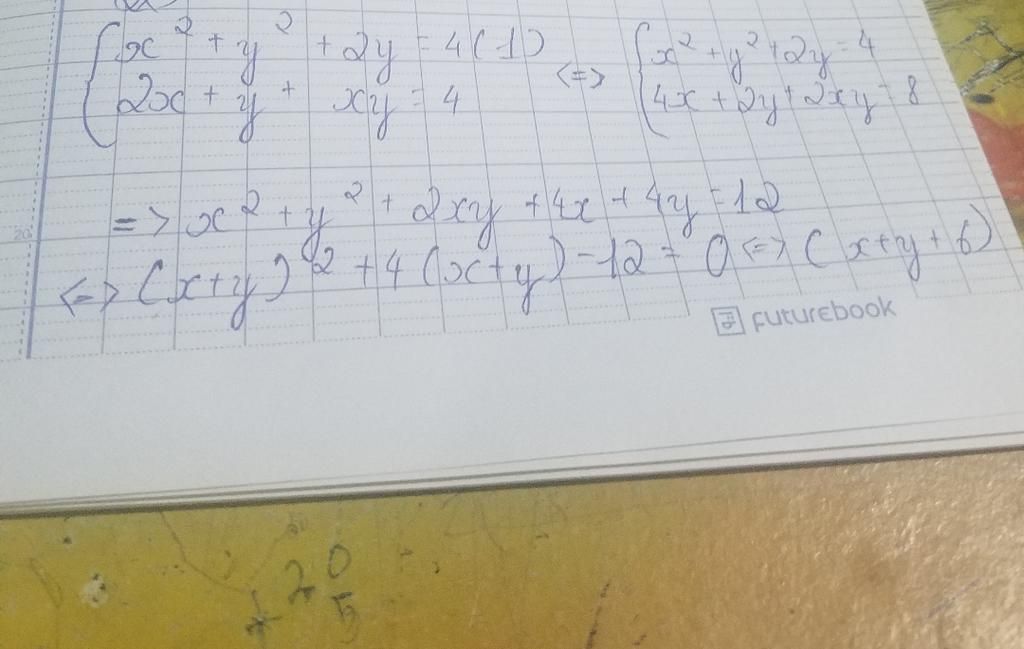 { x² + y² + 2y = 4 (1) <=> { x² + y² + 2y = 4
2x + y + xy = 4 4x + 2y + 2xy = 8
=> x² + y² + 2xy + 4x + 4y = 12
<=> (x+y)² + 4(x+y) - 12 = 0 <=> (x+y+6)
FUTUREBOOK
20
+ 5